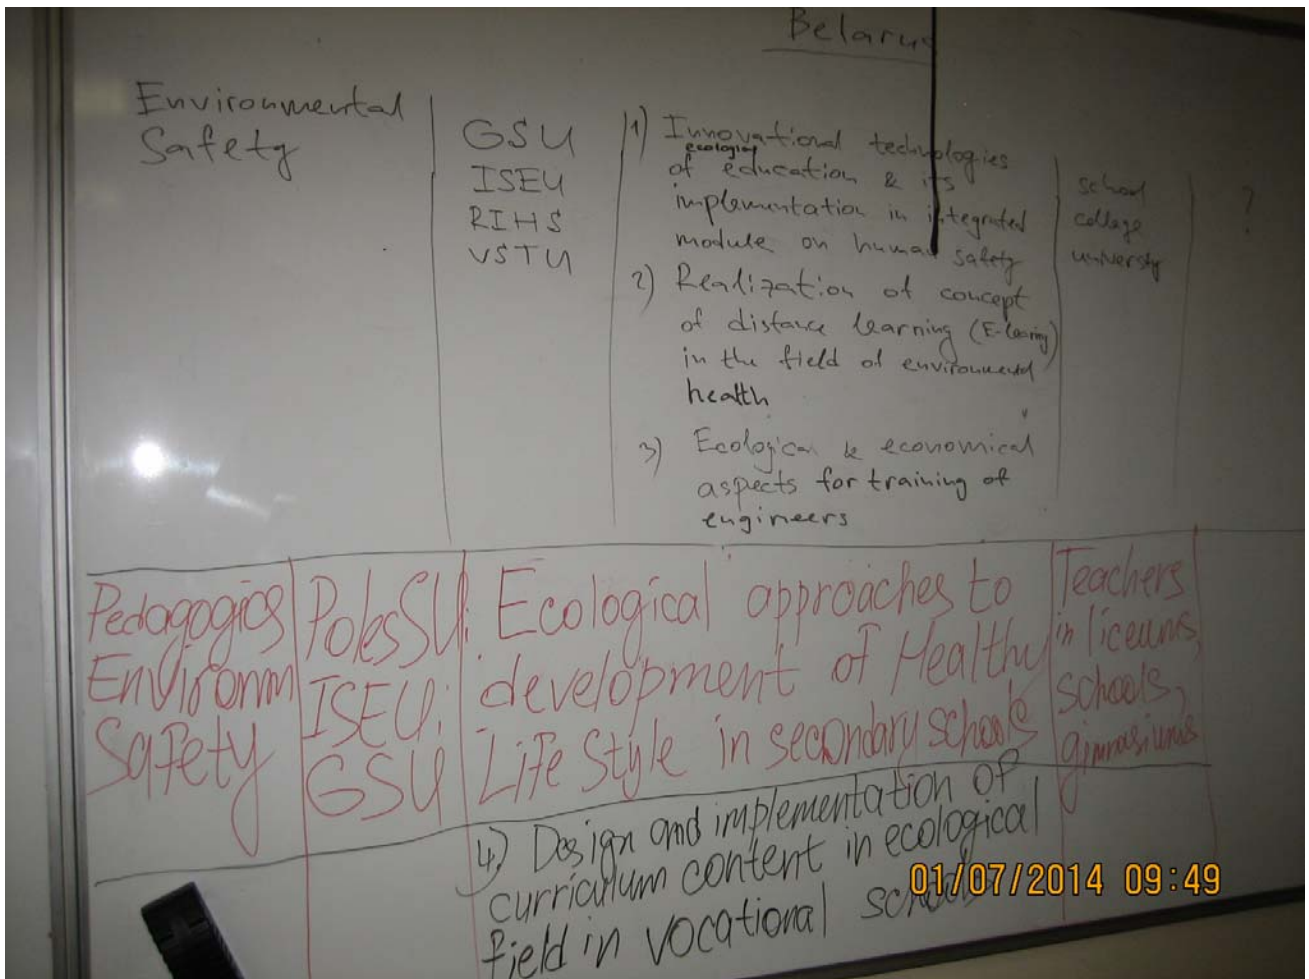 Belarus
Environmental
Safety
GSU
ISEU
RIHS
VSTU
1) Innovational technologies
ecological
of education & its
implementation in integrated
module on human safety
2) Realization of concept
of distance learning (E-learing)
in the field of environmental
health
3) Ecological & economical
aspects for training of
engineers
school
college
university
?
Pedagogics
Environm
Safety
PolesSU;
ISEU;
GSU
Ecological approaches to
development of Healthy
Life Style in secondary schools
Teachers
in liceums,
schools,
gimnasiums
4) Design and implementation of
curriculum content in ecological
field in vocational schools
01/07/2014 09:49